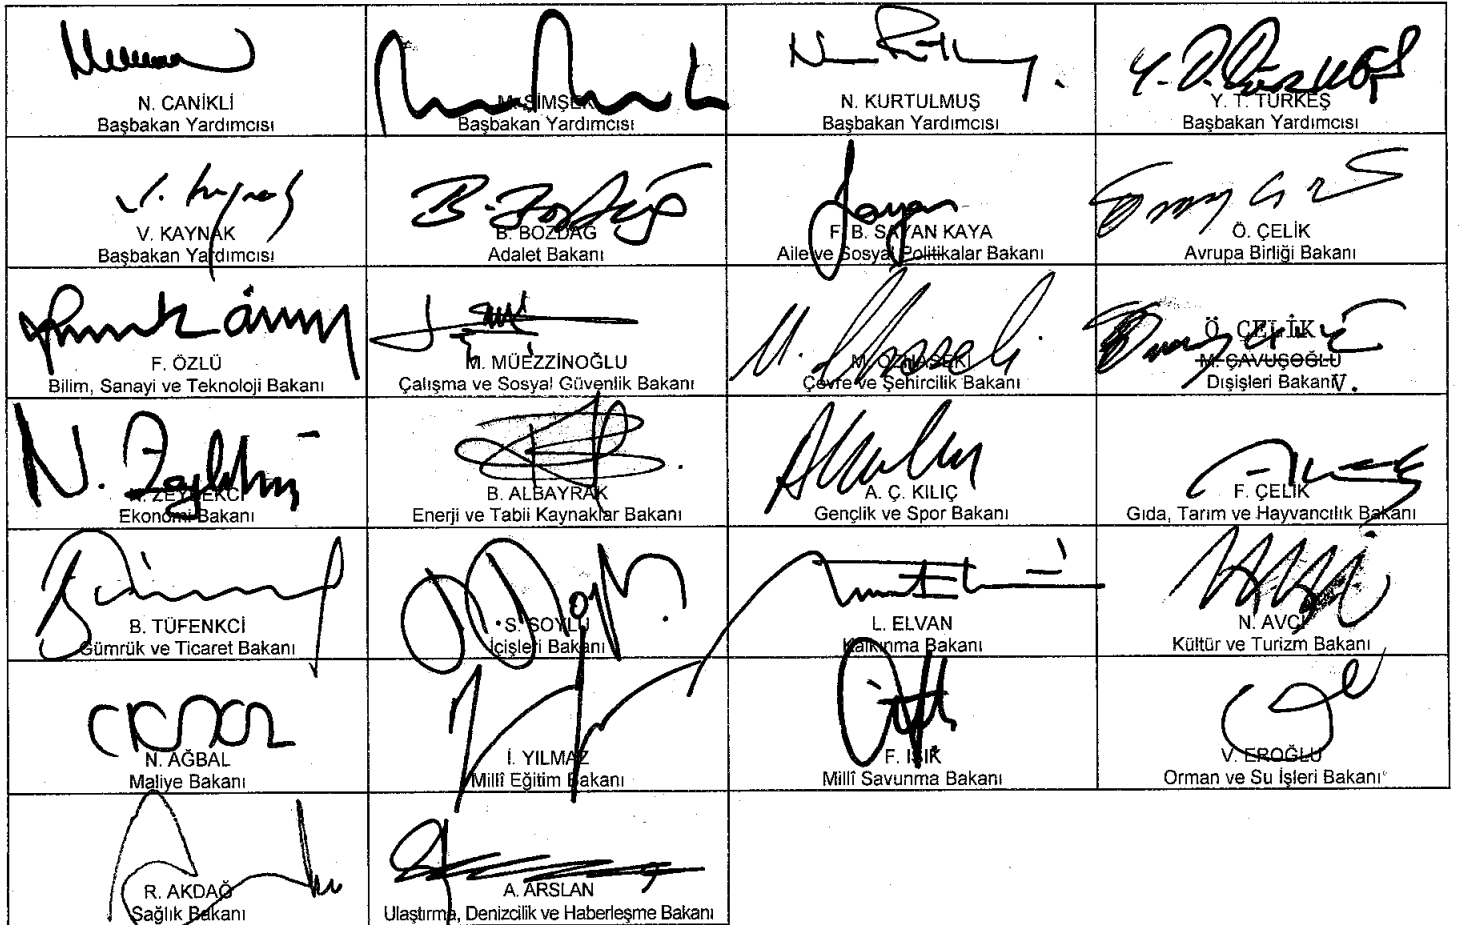 N. CANİKLİ
Başbakan Yardımcısı
M. ŞİMŞEK
Başbakan Yardımcısı
N. KURTULMUŞ
Başbakan Yardımcısı
Y. T. TÜRKEŞ
Başbakan Yardımcısı
V. KAYNAK
Başbakan Yardımcısı
B. BOZDAĞ
Adalet Bakanı
F. B. SAYAN KAYA
Aile ve Sosyal Politikalar Bakanı
Ö. ÇELİK
Avrupa Birliği Bakanı
F. ÖZLÜ
Bilim, Sanayi ve Teknoloji Bakanı
M. MÜEZZİNOĞLU
Çalışma ve Sosyal Güvenlik Bakanı
M. ÖZHASEKİ
Çevre ve Şehircilik Bakanı
Ö. ÇELİK
M. ÇAVUŞOĞLU
Dışişleri Bakanı V.
N. ZEYBEKCİ
Ekonomi Bakanı
B. ALBAYRAK
Enerji ve Tabii Kaynaklar Bakanı
A. Ç. KILIÇ
Gençlik ve Spor Bakanı
F. ÇELİK
Gıda, Tarım ve Hayvancılık Bakanı
B. TÜFENKCİ
Gümrük ve Ticaret Bakanı
S. SOYLU
İçişleri Bakanı
L. ELVAN
Kalkınma Bakanı
N. AVCI
Kültür ve Turizm Bakanı
N. AĞBAL
Maliye Bakanı
İ. YILMAZ
Millî Eğitim Bakanı
F. IŞIK
Millî Savunma Bakanı
V. EROĞLU
Orman ve Su İşleri Bakanı
R. AKDAĞ
Sağlık Bakanı
A. ARSLAN
Ulaştırma, Denizcilik ve Haberleşme Bakanı